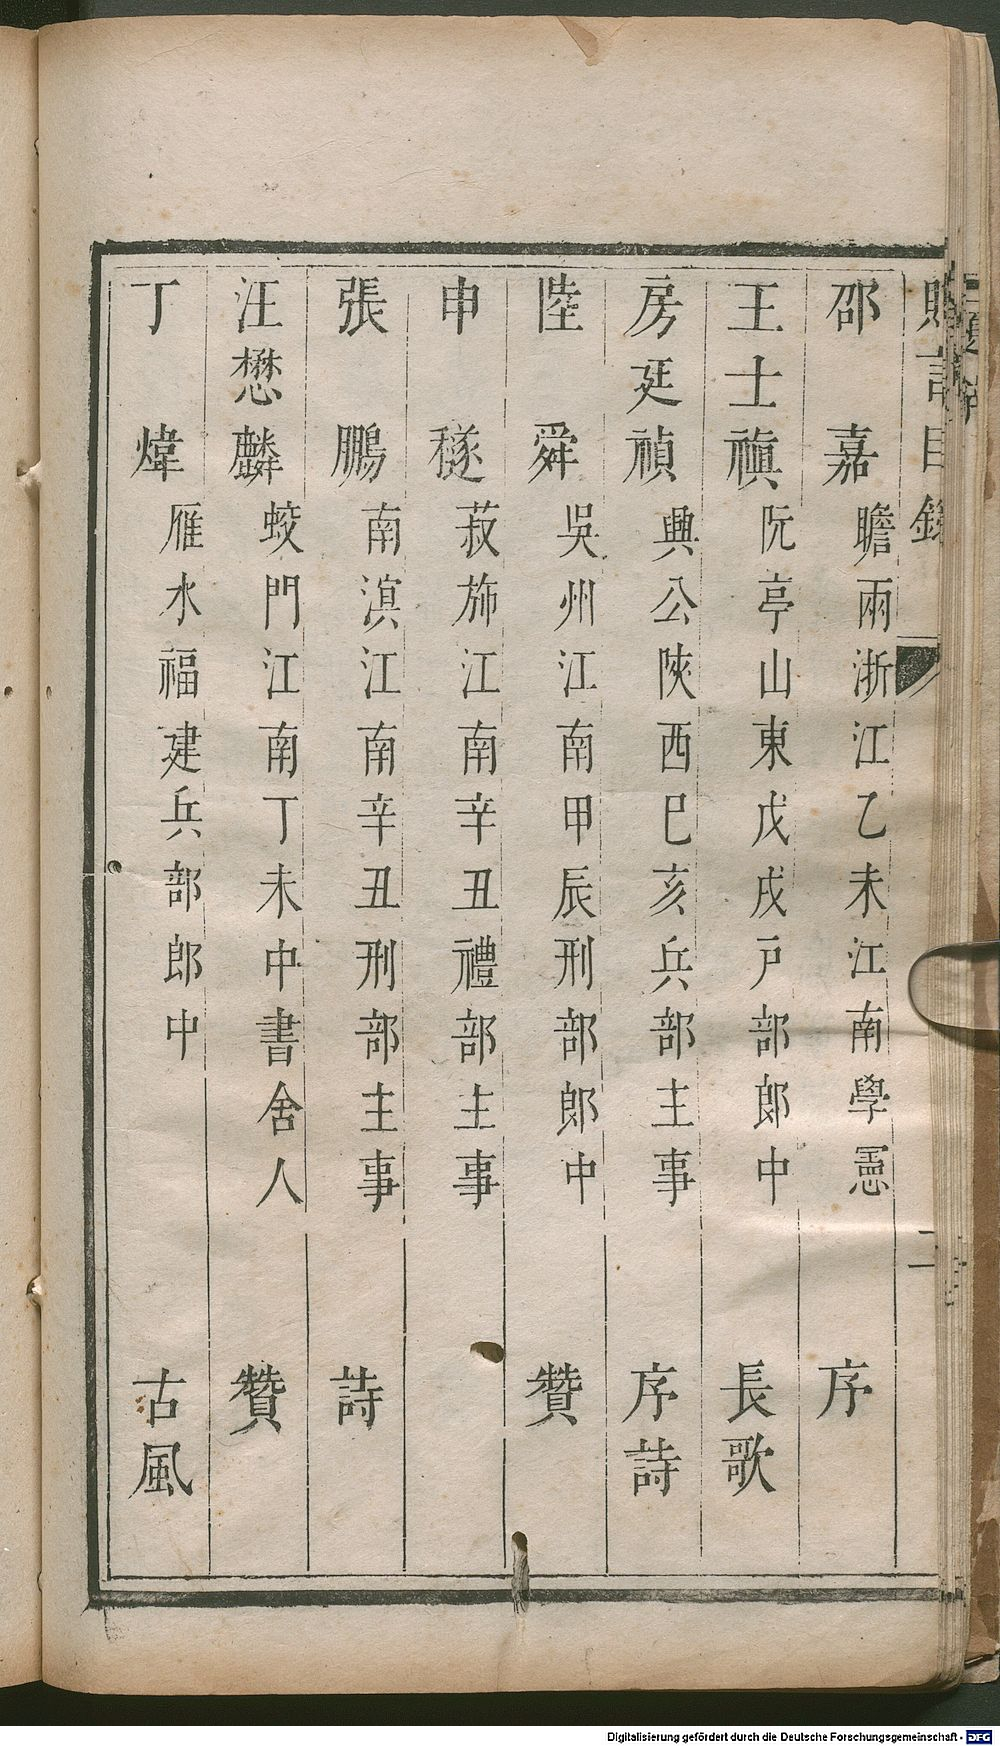 贈言目錄 二
邵　嘉 瞻兩浙江乙未江南學憲 序
王士禛 阮亭山東戊戌戶部郎中 長歌
房廷禎 興公陝西巳亥兵部主事 序詩
陸　舜 吳州江南甲辰刑部郎中 贊
申　穟 菽斾江南辛丑禮部主事
張　鵬 南溟江南辛丑刑部主事 詩
汪懋麟 蛟門江南丁未中書舍人 贊
丁　煒 雁水福建兵部郎中 古風
Digitalisierung gefördert durch die Deutsche Forschungsgemeinschaft - DFG